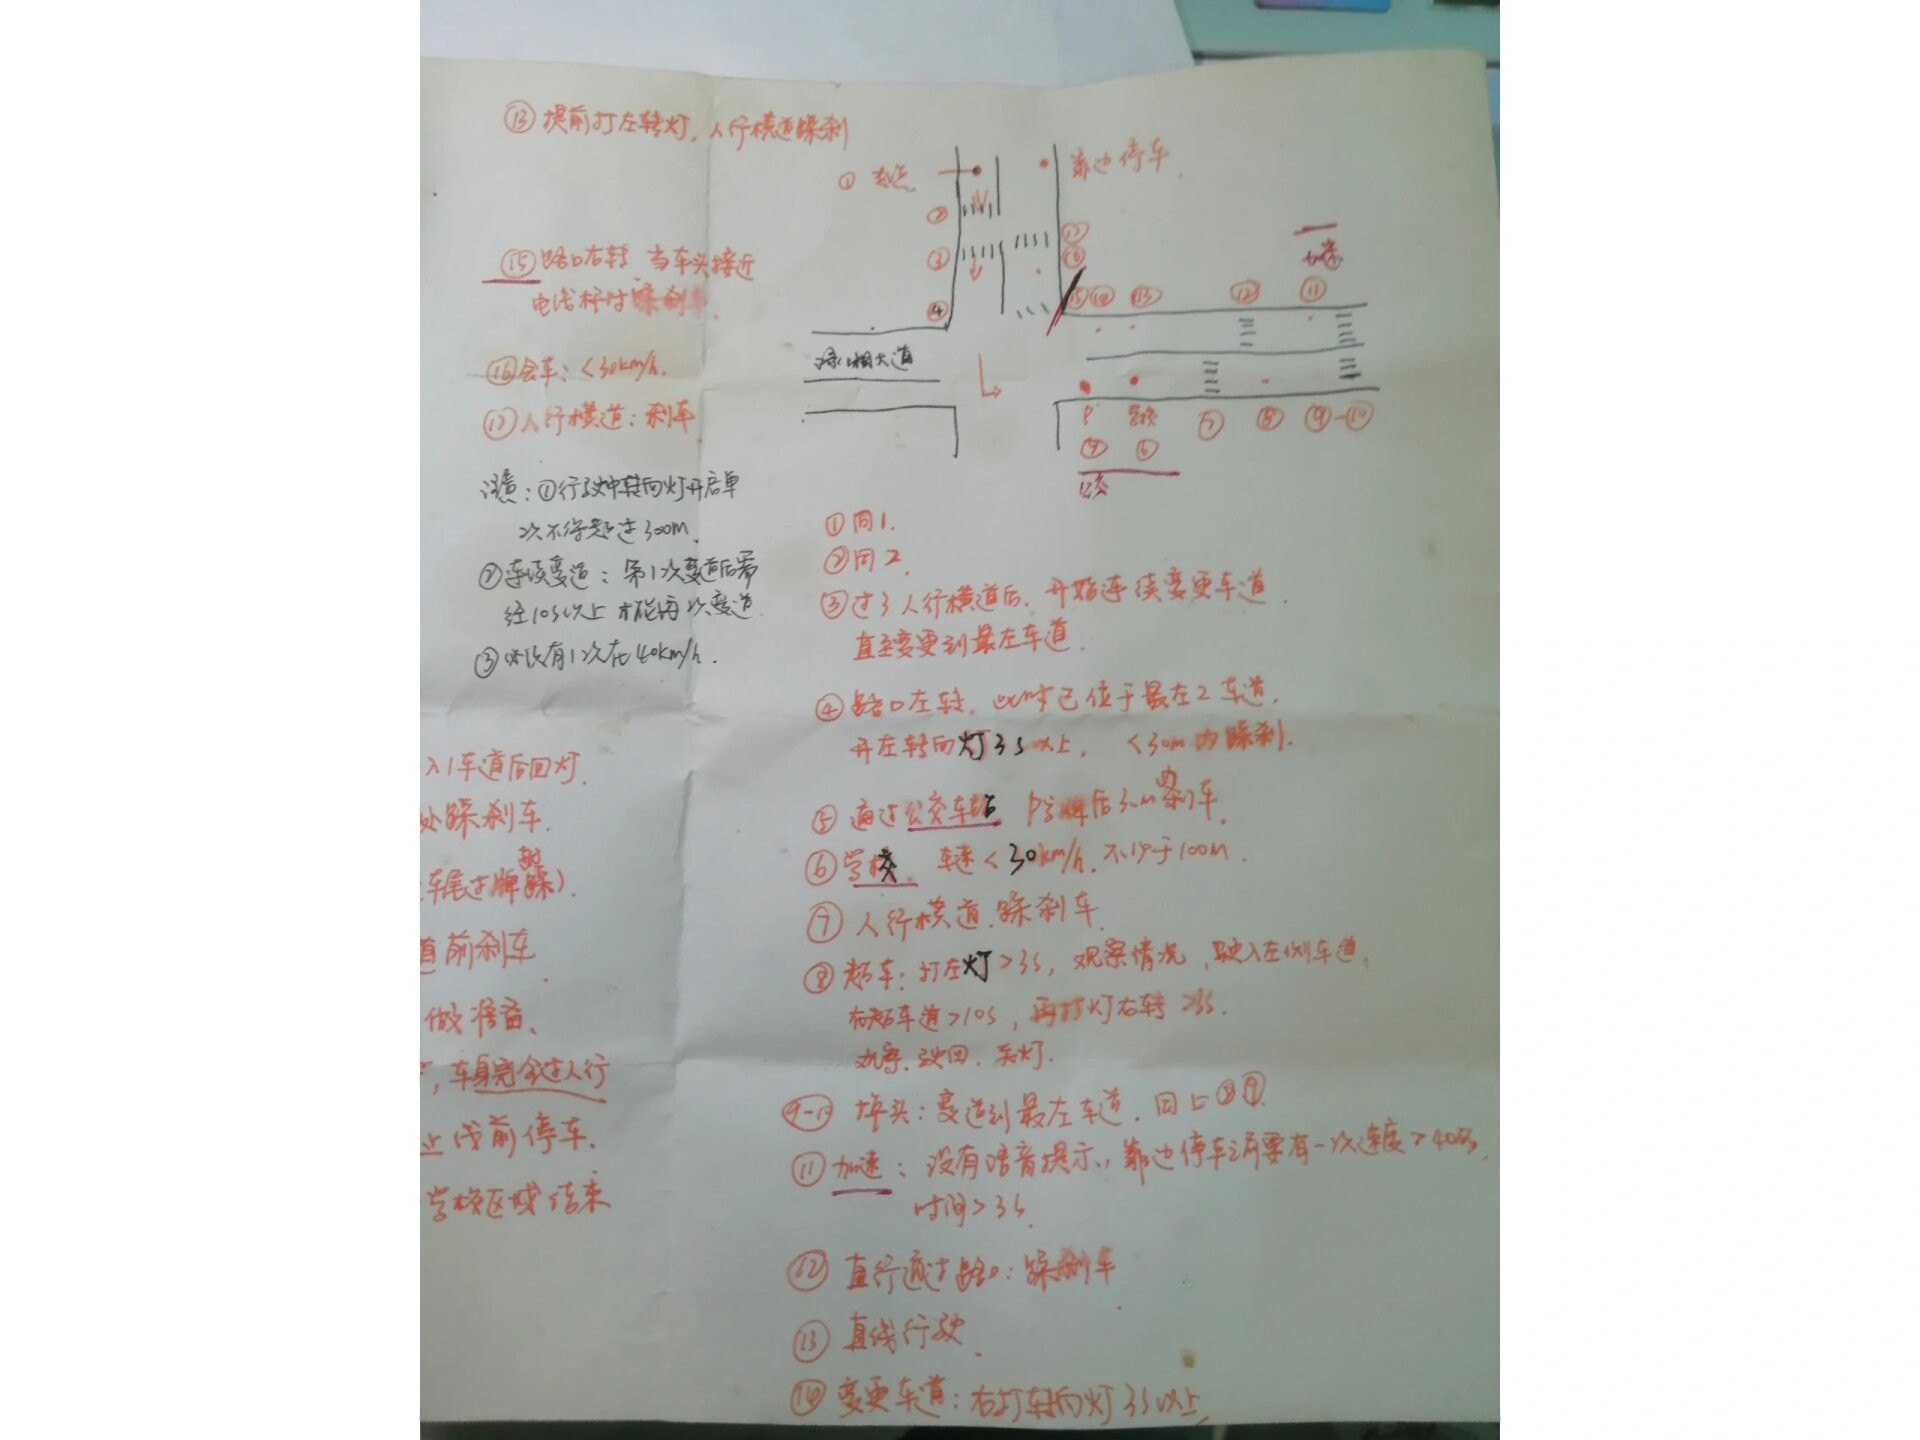 ⑬ 提前打左转灯，人行横道踩刹
⑮ 路口右转 当车头接近
电线杆时踩刹车.
⑯ 会车：<30km/h.
⑰ 人行横道：刹车
注意：①行驶中转向灯开启单
次不得超过300m.
②连续变道：第1次变道后需
经10s以上才能再次变道.
③必须有1次在40km/h.
入1车道后回灯.
处踩刹车.
车尾过牌踩).
道前刹车.
做准备、
车身完全过人行
止线前停车.
学校区域结束
① 起点
靠边停车.
②
③
④
⑰
⑯
加速
⑮ ⑭ ⑬ ⑫ ⑪
绿湘大道
P 学校 ⑦ ⑧ ⑨-⑩
⑥
公交
①同1.
②同2.
③过3人行横道后，开始连续变更车道
直至变更到最左车道.
④路口左转，此时已位于最左2车道，
开左转向灯3s以上， <30m内踩刹.
⑤通过公交车站 P字牌后30m内刹车.
⑥学校 车速<30km/h. 不少于100m.
⑦人行横道.踩刹车
⑧超车：打左灯>3s，观察情况，驶入左侧车道，
在超车道>10s，再打灯右转>3s.
观察.驶回.关灯.
⑨-⑩ 掉头：变道到最左车道. 同上③④.
⑪加速：没有语音提示，靠边停车之前要有一次速度>40码，
时间>3s.
⑫直行通过路口：踩刹车
⑬直线行驶.
⑭变更车道：右打转向灯3s以上